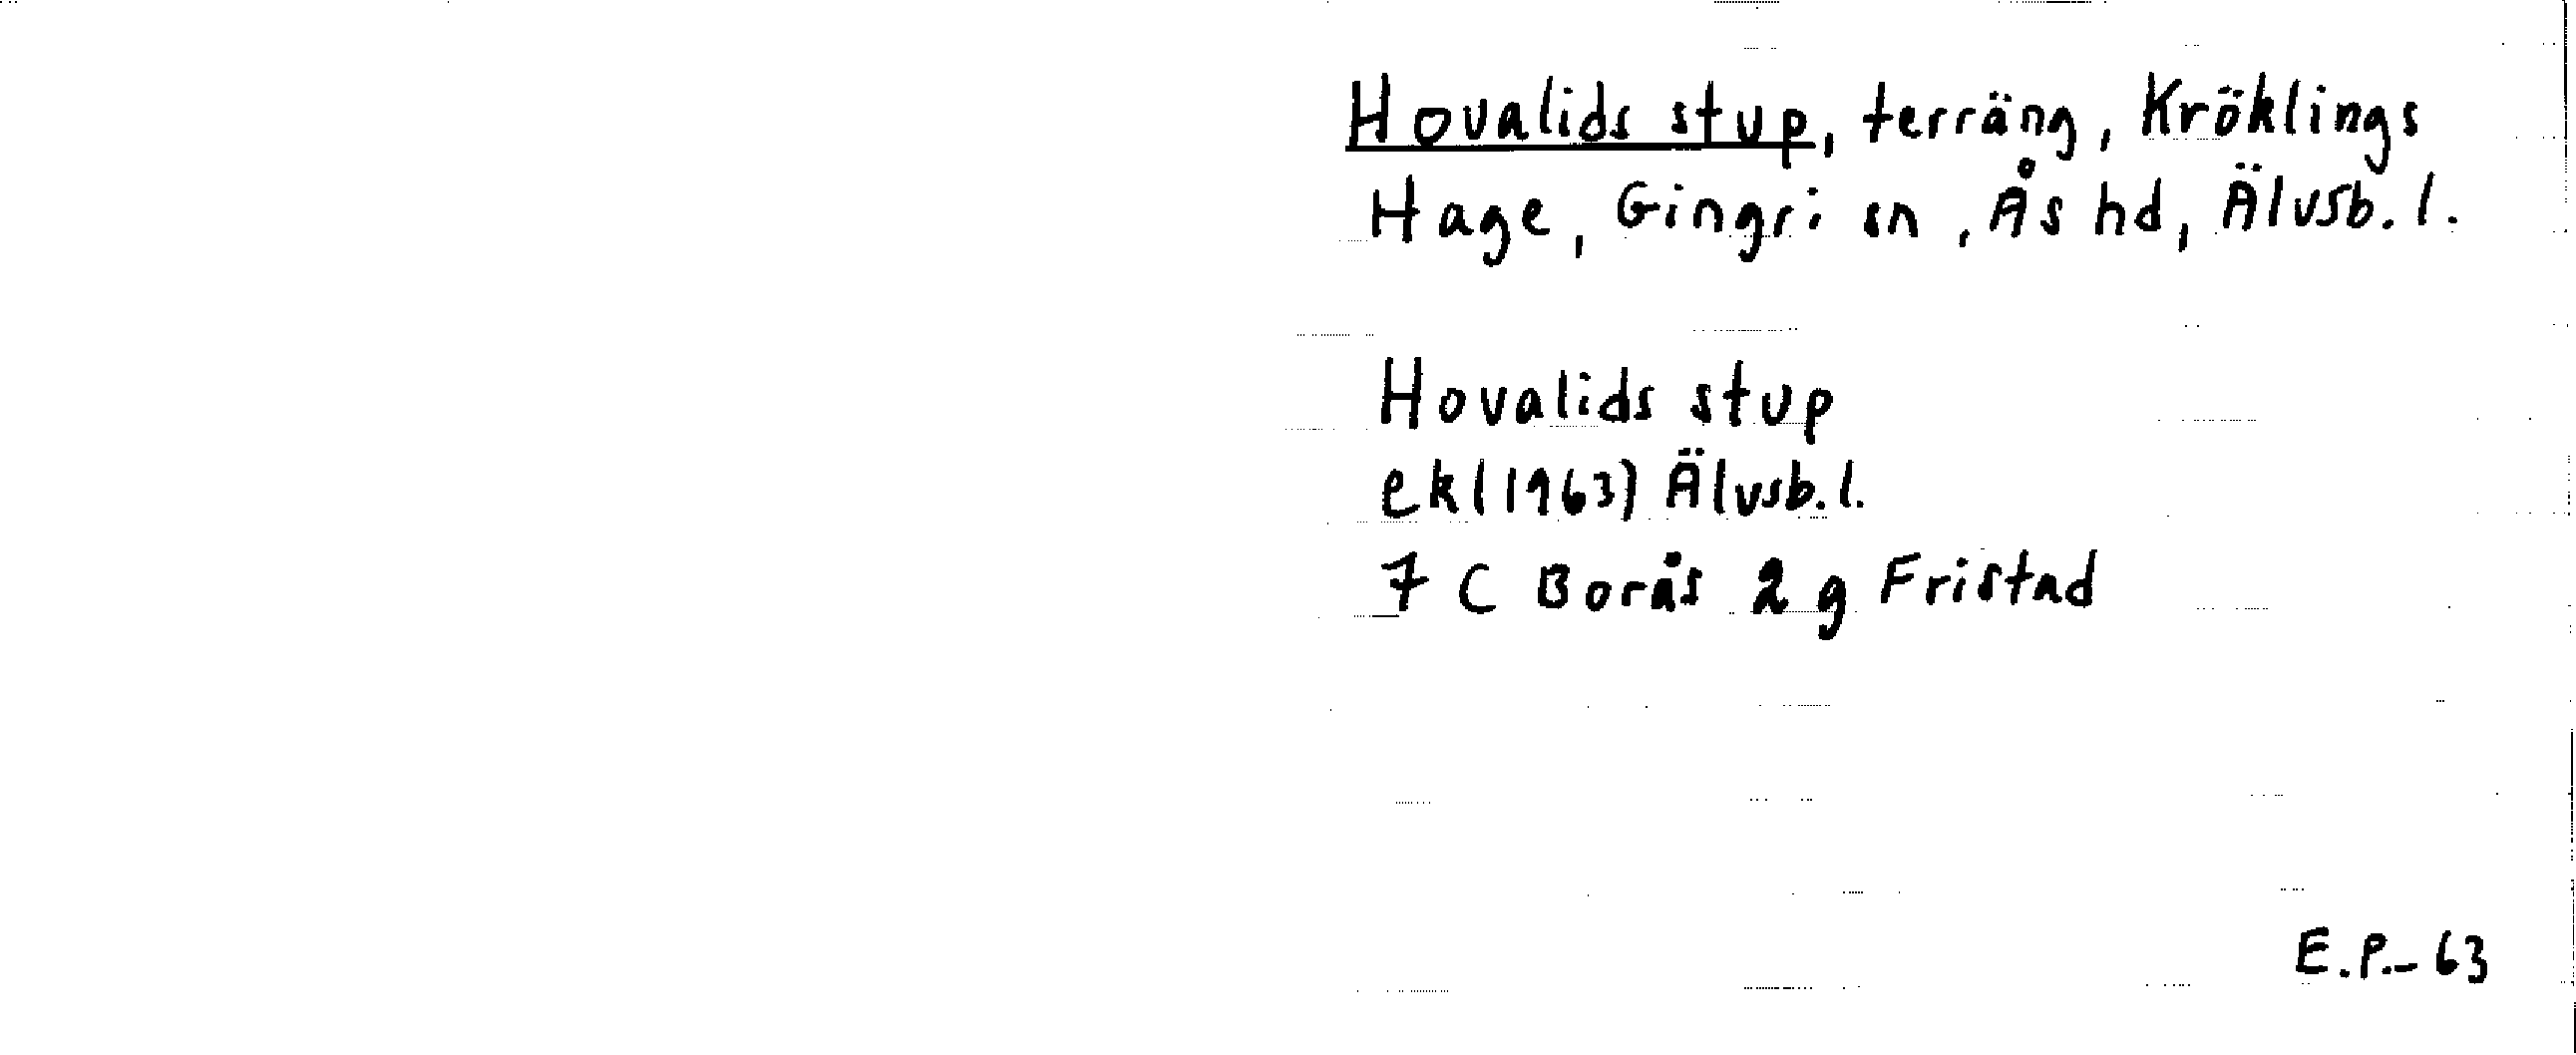 Hovalids stup, terräng, Kröklings
Hage, Gingri sn, Ås hd, Älvsb. l.
Hovalids stup
ek(1963) Älvsb. l.
7 C Borås 2 g Fristad
E.P.-63